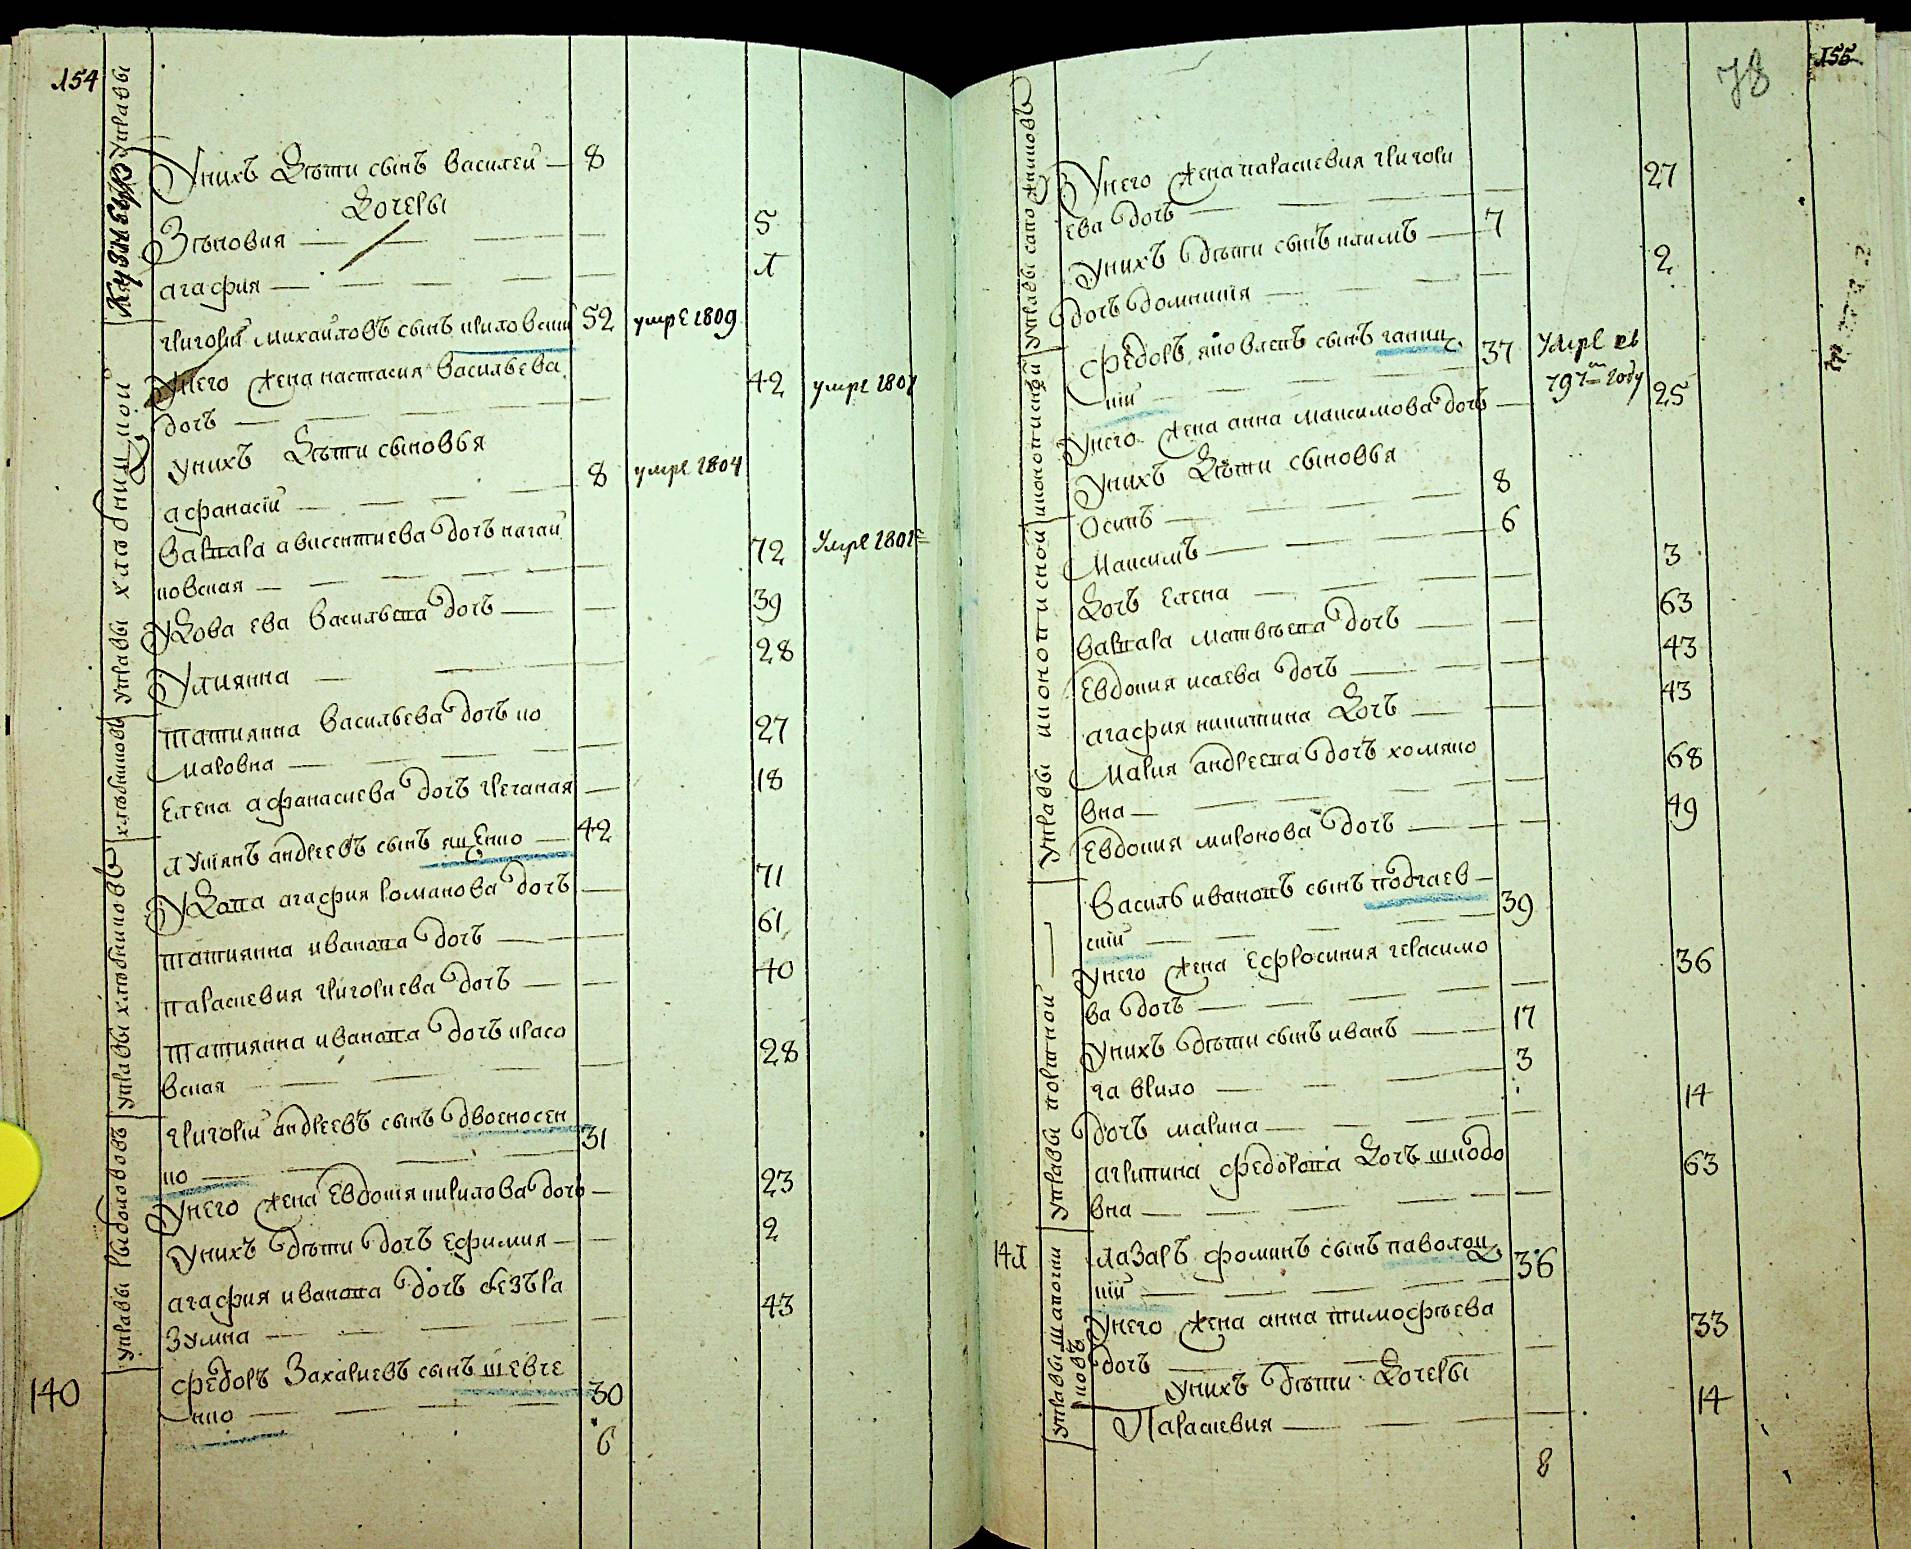 154
Кузнецкой управы
У нихъ дѣти сынъ василей — 8
дочери
Зѣновия — 5
агафия — 1
управы хлѣбниц кой
григорий михайловъ сынъ криловский 52 умре 1809
у него жена настасия васильева 42 умре 1801
дочь —
у нихъ дѣти сыновья
афанасій — 8 умре 1804
варвара ависентиева дочь нагай 72 умре 1801
новская —
удова ева васильева дочь — 39
улиянна — 28
хлѣбниковъ
татиянна васильева дочь ко 27
маровна —
елена афанасиева дочь гречаная 18
управы хлѣбниковъ
лукіянъ андреевъ сынъ ященко — 42
удова агафия романова дочь 71
татиянна иванова дочь — 61
параскевия григориева дочь — 40
татиянна иванова дочь красо 28
вская
управы рыболововъ
григорій андреевъ сынъ двоеносен 31
ко —
у него жена евдокія кирилова дочь — 23
у нихъ дѣти дочь ефимия — 2
агафия иванова дочь безъра 43
зумна —
140
федоръ захариевъ сынъ шевче 30
нко —
6
155
78
управы сапожниковъ
у него жена параскевия григори 27
ева дочь —
у нихъ дѣти сынъ климъ — 7
дочь домникія — 2
иконописной
федоръ яковлевъ сынъ галиц 37 умре въ
кій 797м году
у него жена анна максимова дочь — 25
управы иконописной
у нихъ дѣти сыновья
осипъ — 8
максимъ — 6
дочь елена — 3
варвара матвѣева дочь — 63
евдокия исаева дочь — 43
агафия никитина дочь — 43
мария андреева дочь хомяко 68
вна —
евдокия миронова дочь — 49
управы портной —
василь ивановъ сынъ подгаев — 39
скій —
у него жена ефросиния герасимо 36
ва дочь —
у нихъ дѣти сынъ иванъ — 17
гаврило — 3
дочь марина — 14
агрипина федорова дочь шкодо 63
вна —
141
управы шапошниковъ
лазаръ фоминъ сынъ паволоц 36
кій —
у него жена анна тимофѣева 33
дочь —
у нихъ дѣти дочеры
Параскевия — 14
8